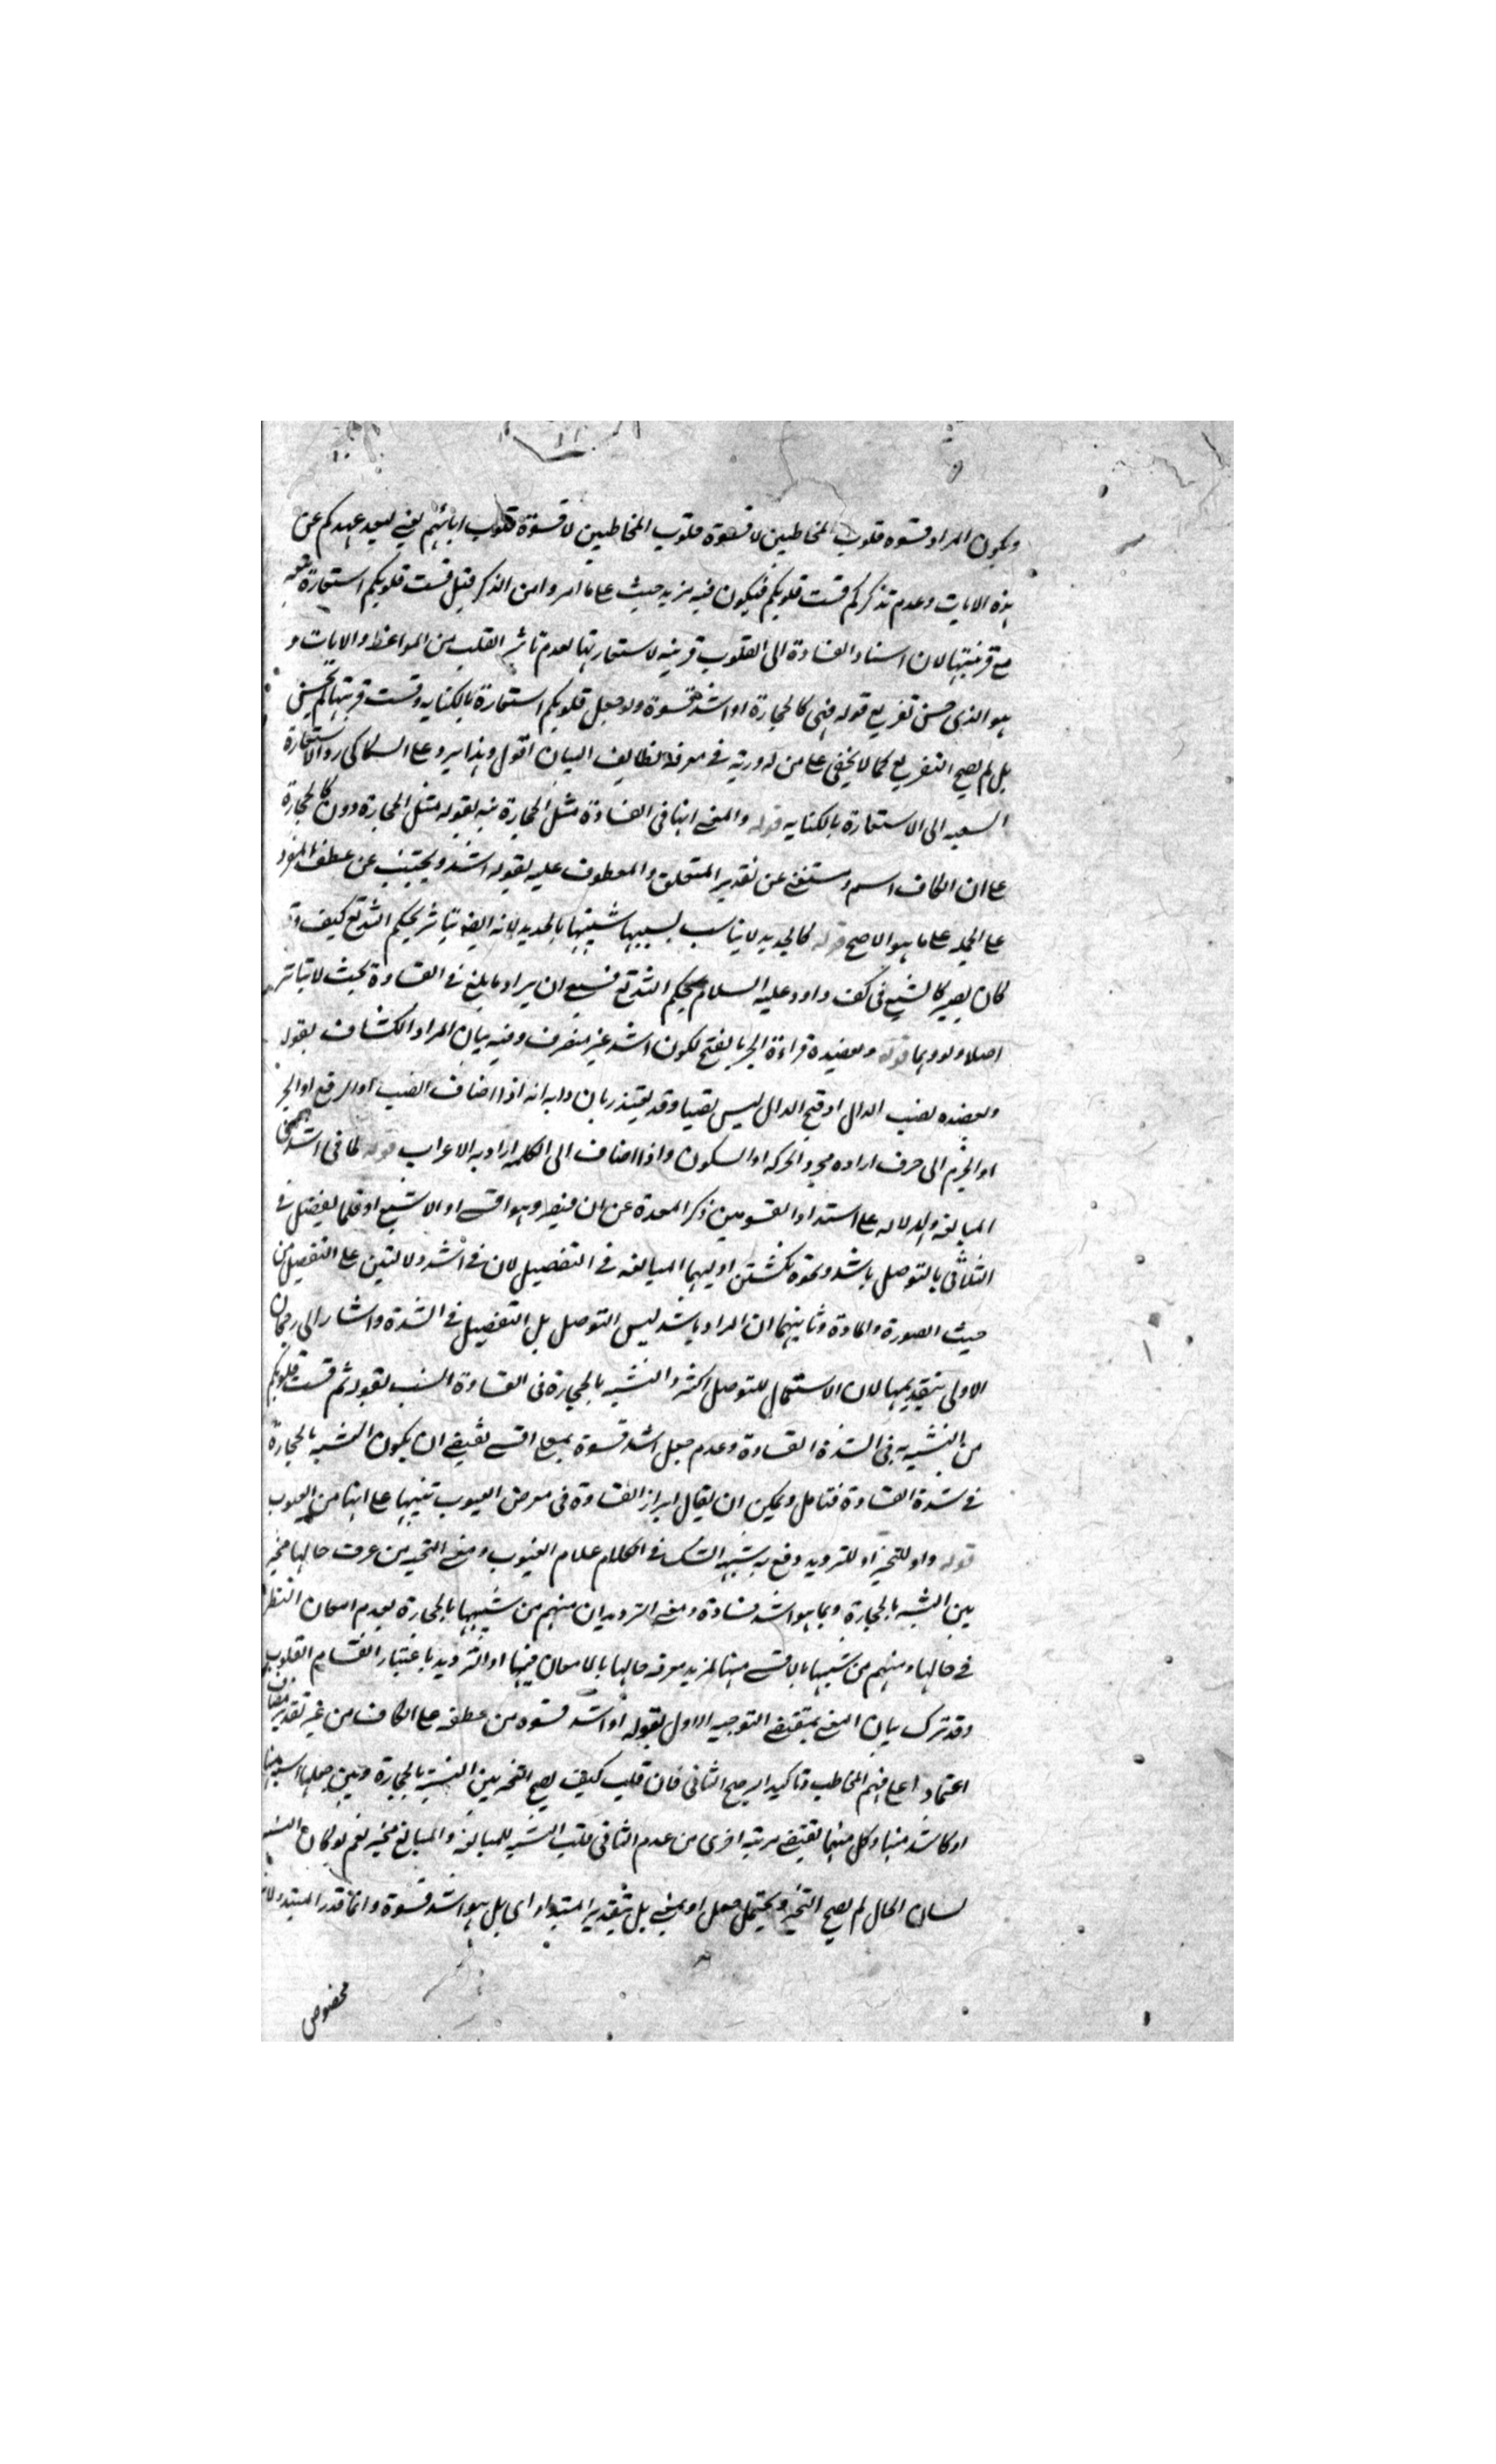 ويكون المراد قسوة قلوب المخاطبين لا قسوة قلوب المخاطبين لا قسوة قلوب ابائهم يعني لبعد عهدكم عن
هذه الايات وعدم تذكركم قست قلوبكم فيكون فيه مزيد حيث على ما امروا من الذكر قيل قست قلوبكم استعارة تبعيه
مع قرينتها لان اسناد القساوة الى القلوب قرينه لاستعارتها لعدم تاثر القلب من المواعظ والايات و
هو الذي حسن تفريع قوله فهي كالحجارة او اشد قسوة ولو جعل قلوبكم استعارة بالكنايه وقست قرينتها لم يحسن
بل لم يصح التفريع كما لا يخفى على من له دربة في معرفة لطايف البيان اقول وبهذا يرد على السكاكي رد الاستعارة
التبعيه الى الاستعارة بالكنايه قوله والمعنى انها في القساوة مثل الحجارة نبه بقوله مثل الحجارة دون كالحجارة
على ان الكاف اسم ومستغنى عن تقدير المتعلق والمعطوف عليه لقوله اشد ويجتنب عن عطف المفرد
على الجمله على ما هو الاصح قوله كالحديد لا يناسب تشبيهها بالحديد لانه ايضا يتاثر بحكم الله تع كيف وقد
كان يصير كالشمع في كف داود عليه السلام بحكم الله تع فينبغي ان يراد ما يبلغ في القساوة بحيث لا يتاثر
اصلا ولو وهما قوله ويعضده قراءة الجر بالفتح لكون اشد غير منصرف وفيه بيان المراد الكشاف بقوله
ويعضده نصب الدال او فتح الدال ليس نصبا وقد يعتذر بان دابه انه اذا اضاف النصب او الرفع او الجر
او الجزم الى حرف اراد به مجرد الحركه او السكون واذا اضاف الى الكلمه اراد به الاعراب قوله لما في اشد
المبالغه والدلاله على اشتداد القسوتين ذكر المعدة عن ان فيه وهو اقسى او الاشيع او قلما يفضل في
الثلاثي بالتوصل باشد ونحوه نكتتين اوليهما المبالغه في التفضيل لان في اشد دلالتين على التفضيل من
حيث الصورة والمادة وثانيتهما ان المراد باشد ليس التوصل بل التفضيل في الشدة واشار الى رجحان
الاولى بتقديمها لان الاستعمال للتوصل اكثر والتشبيه بالحجارة في القساوة انسب بقوله ثم قست قلوبكم
من التشبيه في الشدة القساوة وعدم جعل اشد قسوة بمعنى اقسى يقتضي ان يكون التشبيه بالحجارة
في شدة القساوة فتامل ويمكن ان يقال ابراز القساوة في معرض العيوب تنبيها على انها من العيوب
قوله واو للتخيير او للترديد دفع به شبهه الشك في الكلام علام الغيوب ومعنى التخيير من عرف حالها مخير
بين التشبيه بالحجارة وبما هو اشد قساوة ومعنى الترديد ان منهم من شبهها بالحجارة لعدم امعان النظر
في حالها ومنهم من شبهها بالاقسى منها لمزيد معرفه حالها بالامعان فيها او الترديد باعتبار انقسام القلوب
وقد ترك بيان المعنى بمقتضى التوجيه الاول لقوله او اشد قسوه من عطفه على الكاف من غير تقدير مضاف
اعتمادا على فهم المخاطب وتاكيدا لرجح الثاني فان قلت كيف يصح التخيير بين التشبيه بالحجارة وبين جعلها
او كاشد منها وكل منهما يقتضي مرتبه اخرى من عدم الثاني قلت التشبيه للمبالغه والمبالغ مخير نعم لو كان التشبيه
لسان الحال لم يصح التخيير ويحتمل جعل او بمعنى بل بتقدير المبتدا اي بل هو اشد قسوة وانما قدر المبتدا لان
مخصوص